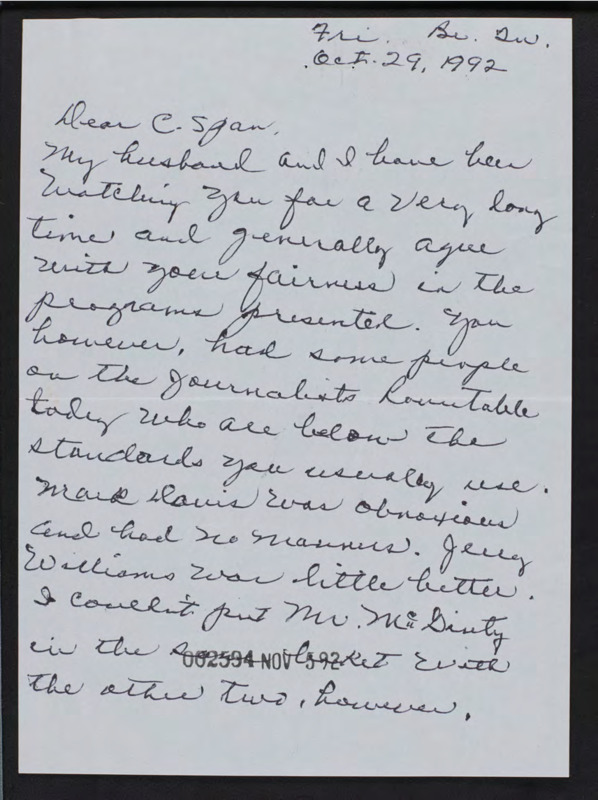 Fri.
Oct. 29, 1992
Dear C. Span,
My husband and I have been
Watching you for a very long
time and generally agree
with your fairness in the
programs presented. You
however, had some people
on the Journalists Rountable
today who are below the
standards you usually use.
Mark Davis was obnoxious
and had no manners. Jerry
Williams was little better.
I couldn't put Mr.
in the with
002594 NOV 5 92
the other two, however.